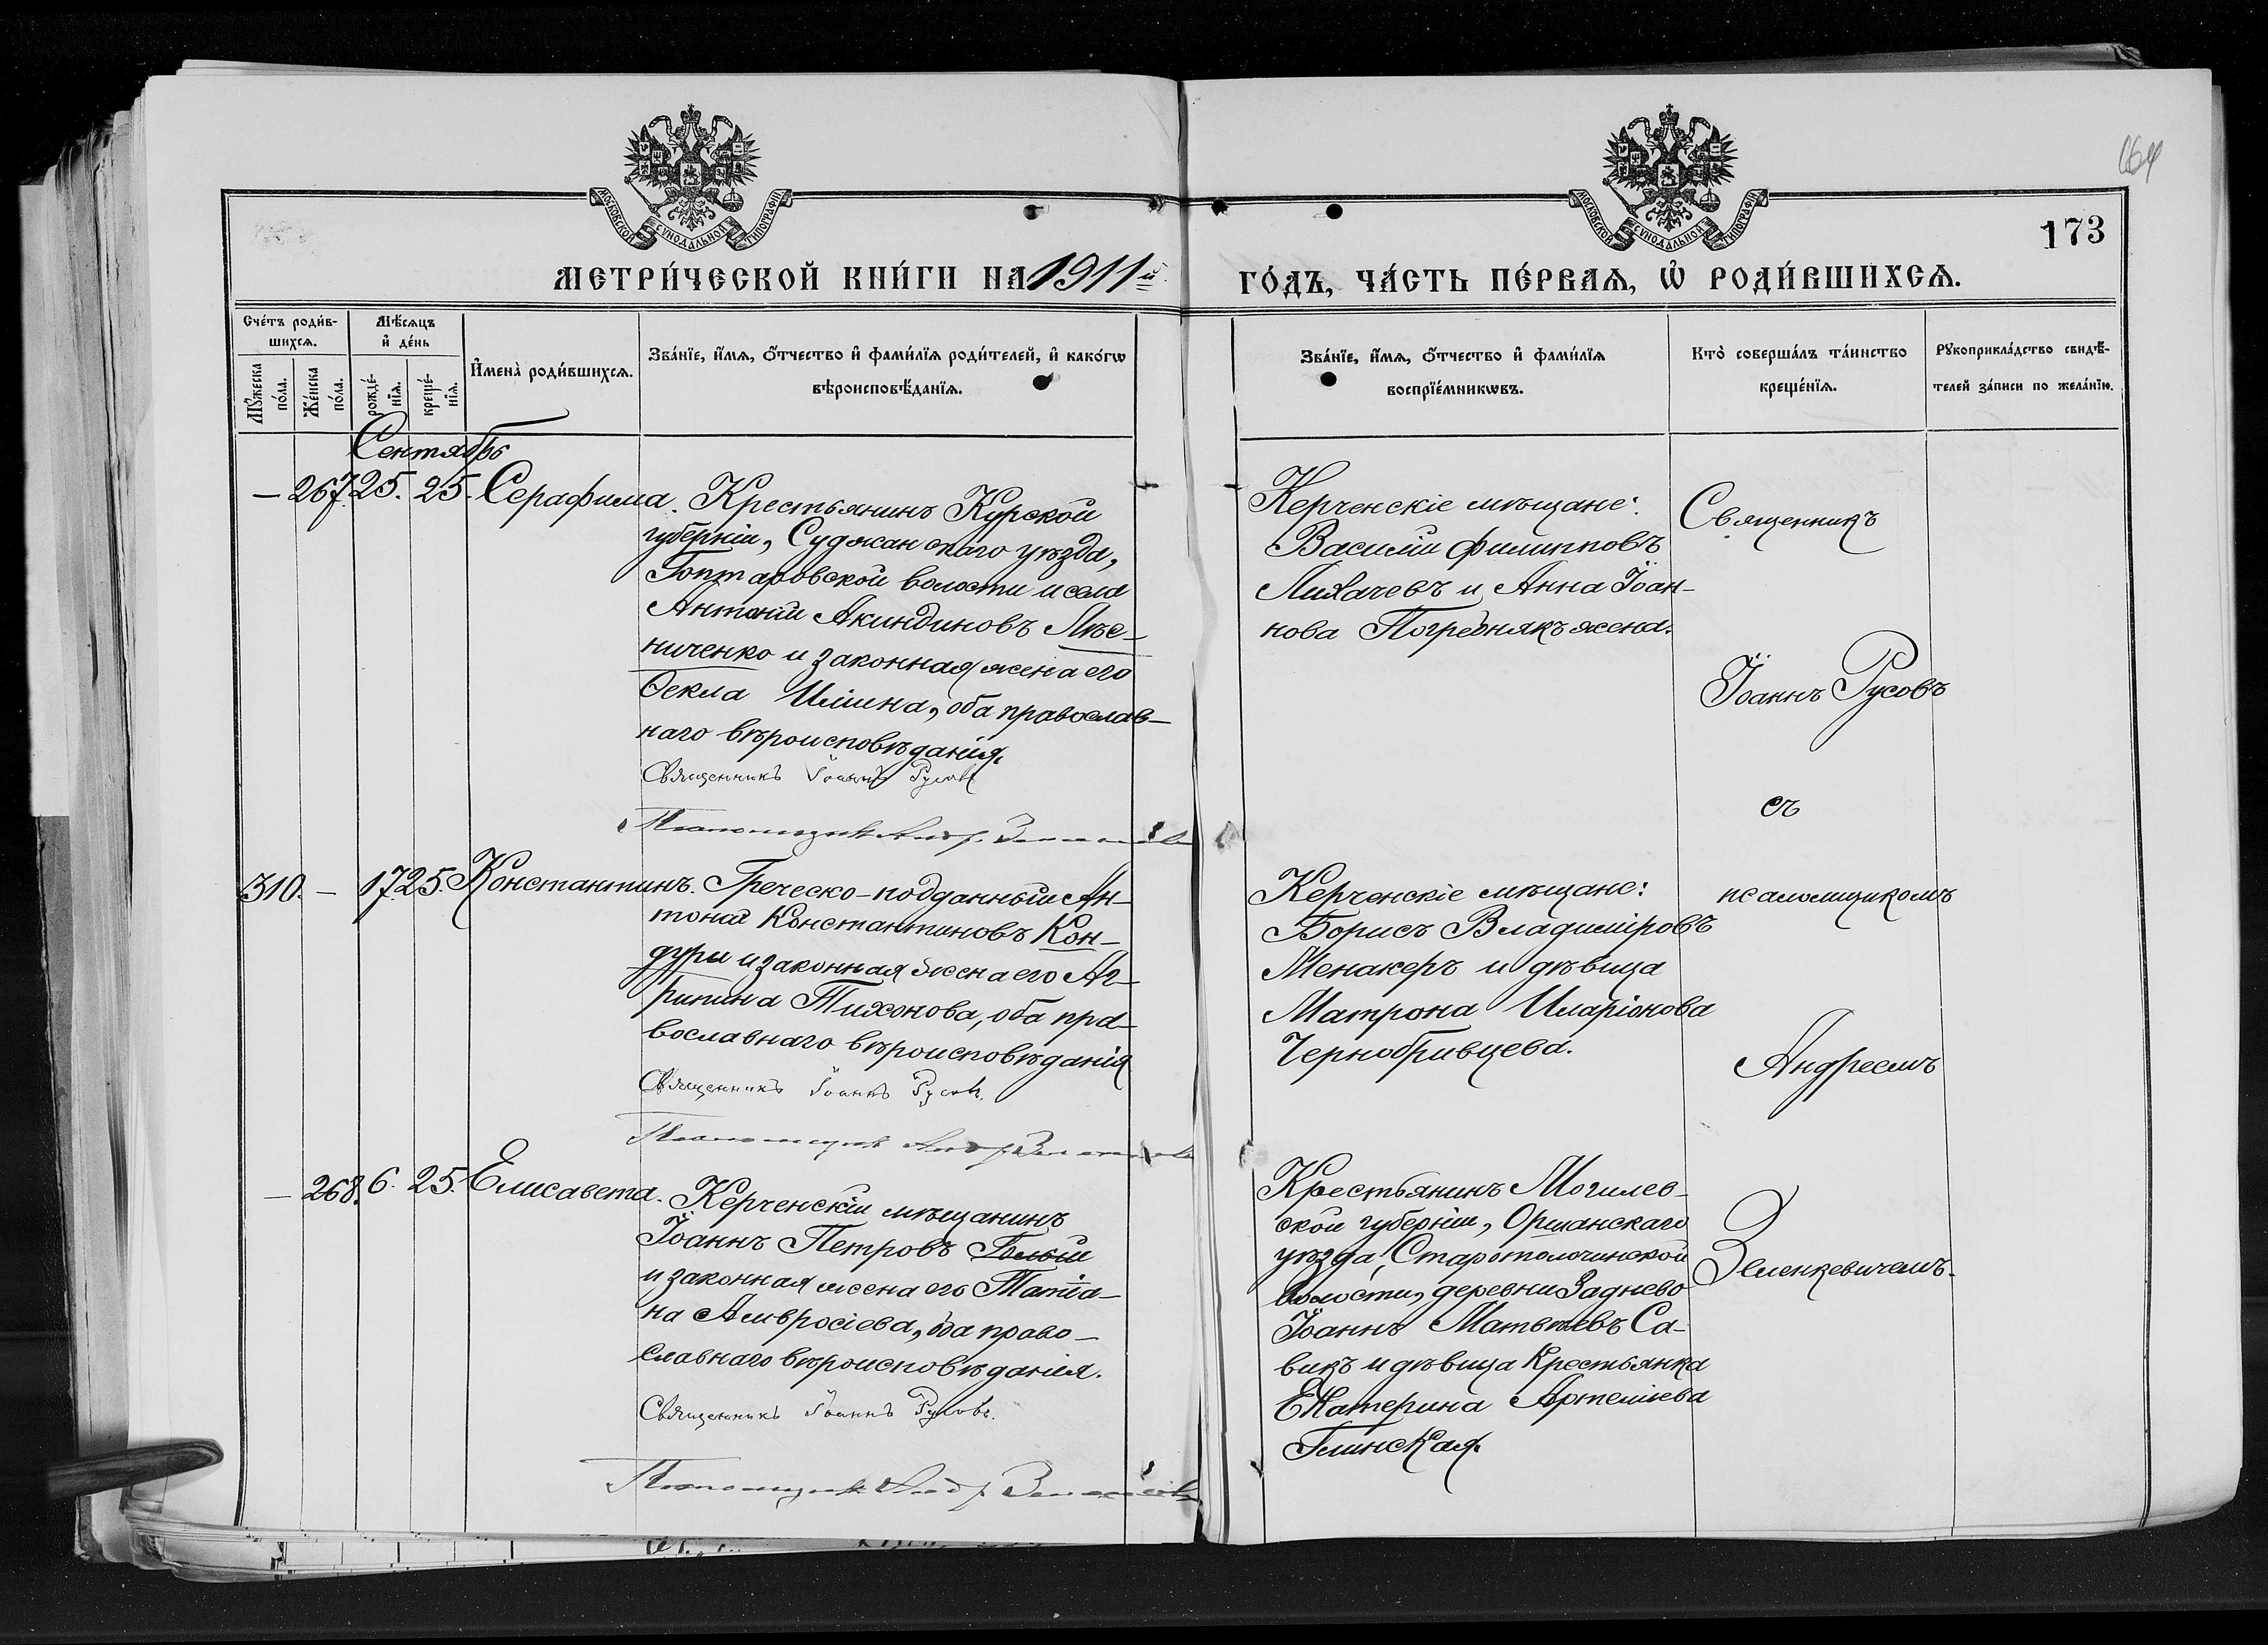 164
173
МОСКОВСКОЙ СѴНОДАЛЬНОЙ ТИПОГРАФІИ
МОСКОВСКОЙ СѴНОДАЛЬНОЙ ТИПОГРАФІИ
МЕТРИ́ЧЕСКОЙ КНИ́ГИ НА 1911й
ГО́ДЪ, ЧА́СТЬ ПЕ́РВАѦ, Ѡ҆ РОДИ́ВШИХСѦ.
Сче́тъ роди́в-
шихсѧ.
Мѣ́сяцъ
и҆ де́нь
Мꙋ́жеска
по́ла.
Же́нска
по́ла.
рожде́-
нїѧ.
креще́-
нїѧ.
И҆мена̀ роди́вшихсѧ.
Зва́нїе, и҆́мѧ, ѻ҆́тчество и҆ фами́лїѧ роди́телей, и҆ како́гѡ
вѣроисповѣ́данїѧ.
Зва́нїе, и҆́мѧ, ѻ҆́тчество и҆ фами́лїѧ
воспрїе́мникѡвъ.
Кто̀ соверша́лъ та́инство
креще́нїѧ.
Рꙋкоприкла́дство свидѣ́-
телей за́писи по жела́нїю.
Сентябрь
— 267. 25. 25. Серафима. Крестьянинъ Курской
губерніи, Суджанскаго уѣзда,
Гоптаровской волости и села
Антоній Акиндиновъ Мѣс-
ниченко и законная жена его
Ѳекла Ильина, оба православ-
наго вѣроисповѣданія.
Священникъ Іоаннъ Русовъ
Псаломщикъ Андр. Зеленкевичъ
Керченскіе мѣщане:
Василій Филипповъ
Лихачевъ и Анна Іоан-
нова Погребнякъ жена.
Священникъ
Іоаннъ Русовъ
съ
псаломщикомъ
Андреемъ
Зеленкевичемъ.
310. — 17. 25. Константинъ. Греческо-подданный Ан-
тоній Константиновъ Кон-
дури и законная жена его Аг-
рипина Тихонова, оба пра-
вославнаго вѣроисповѣданія
Священникъ Іоаннъ Русовъ.
Псаломщикъ Андр. Зеленкевичъ
Керченскіе мѣщане:
Борисъ Владиміровъ
Менакеръ и дѣвица
Матрона Иларіонова
Чернобривцева.
— 268. 6. 25. Елисавета. Керченскій мѣщанинъ
Іоаннъ Петровъ
и законная жена его Татіа-
на Амвросіева, оба право-
славнаго вѣроисповѣданія.
Священникъ Іоаннъ Русовъ.
Псаломщикъ Андр. Зеленкевичъ
Крестьянинъ Могилев-
ской губерніи, Оршанскаго
уѣзда, Старотолочинской
волости, деревни Заднево
Іоаннъ Матвѣевъ Са-
викъ и дѣвица крестьянка
Екатерина Артеміева
Глинская.